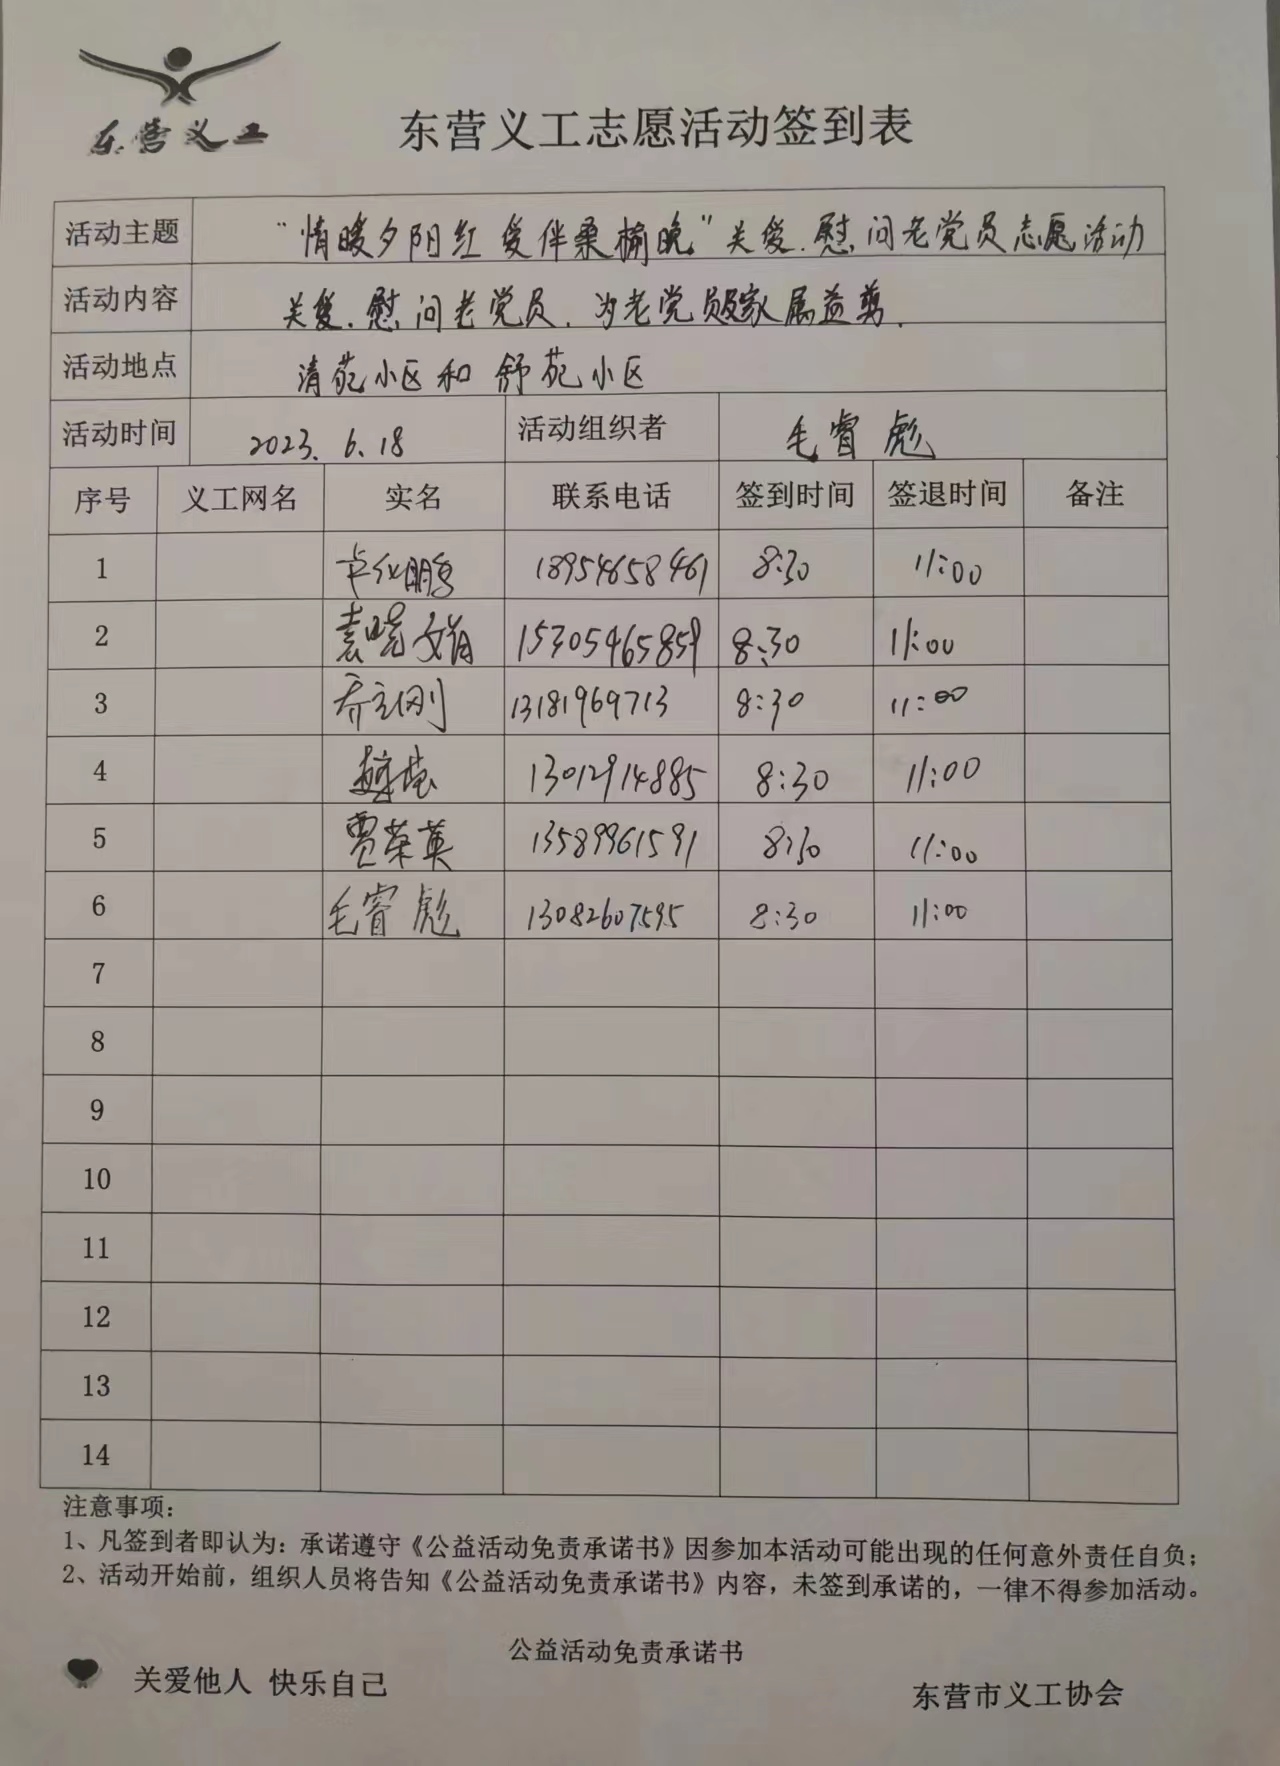 东营义工
东营义工志愿活动签到表
活动主题 “情暖夕阳红 爱伴桑榆晚”关爱.慰问老党员志愿活动
活动内容 关爱.慰问老党员.为老党员及家属益剪.
活动地点 清苑小区和舒苑小区
活动时间 2023.6.18 活动组织者 毛睿彪
序号 义工网名 实名 联系电话 签到时间 签退时间 备注
1 18954658461 8:30 11:00
2 袁晓文娟 15305465859 8:30 11:00
3 乔立刚 13181969713 8:30 11:00
4 13012914885 8:30 11:00
5 贾荣英 13589961591 8:30 11:00
6 毛睿彪 13082607595 8:30 11:00
7
8
9
10
11
12
13
14
注意事项:
1、凡签到者即认为：承诺遵守《公益活动免责承诺书》因参加本活动可能出现的任何意外责任自负；
2、活动开始前，组织人员将告知《公益活动免责承诺书》内容，未签到承诺的，一律不得参加活动。
公益活动免责承诺书
关爱他人 快乐自己
东营市义工协会